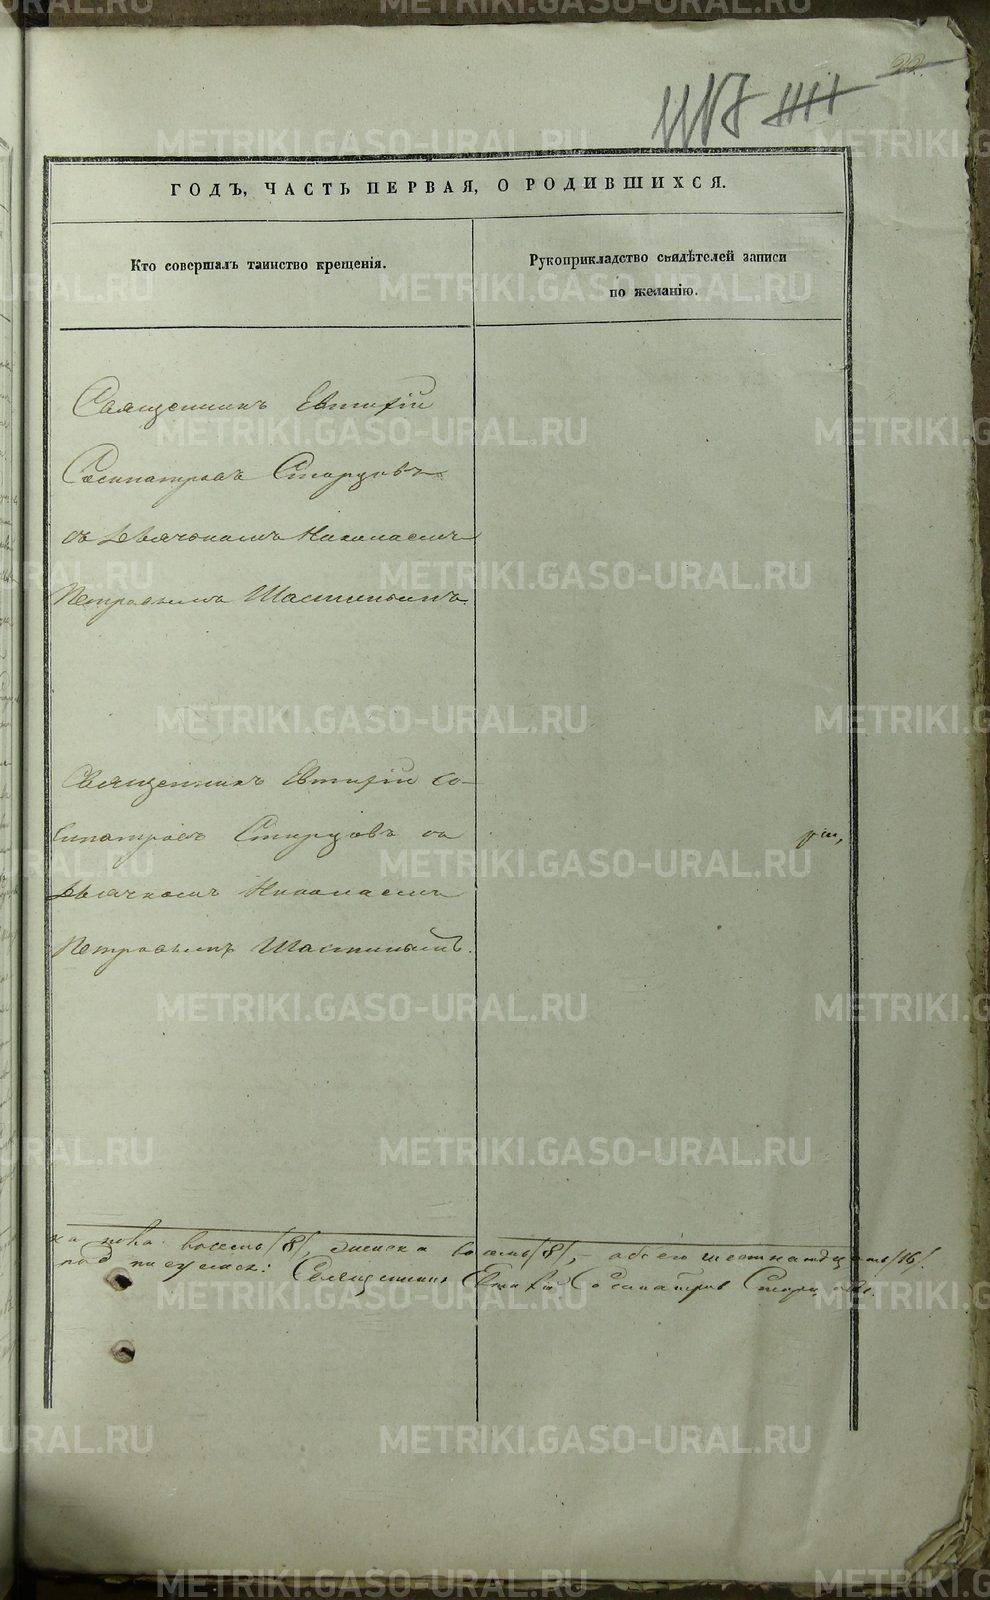 22
ГОДЪ, ЧАСТЬ ПЕРВАЯ, О РОДИВШИХСЯ.
Кто совершалъ таинство крещенія.
Рукоприкладство свидѣтелей записи
по желанію.
Священникъ Евтихій
Сосипатровъ Старцовъ
съ дьячкомъ Николаемъ
Петровымъ Шастинымъ.
Священникъ Евтихій Со-
сипатровъ Старцовъ съ
дьячкомъ Николаемъ
Петровымъ Шастинымъ.
пола восемь /8/, женска восемь /8/, – обоего шестнадцать /16/.
Священникъ Евтихій Сосипатровъ Старцовъ.
METRIKI.GASO-URAL.RU